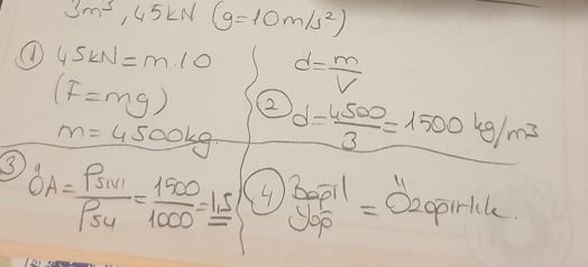 3m³, 45kN (g=10m/s²)
① 45kN=m.10
(F=mg)
m=4500kg
d=m/V
② d=4500/3=1500 kg/m³
③ ÖA=Psıvı/Psu=1500/1000=1,5
④ Bağıl Yoğ = Özağırlık.